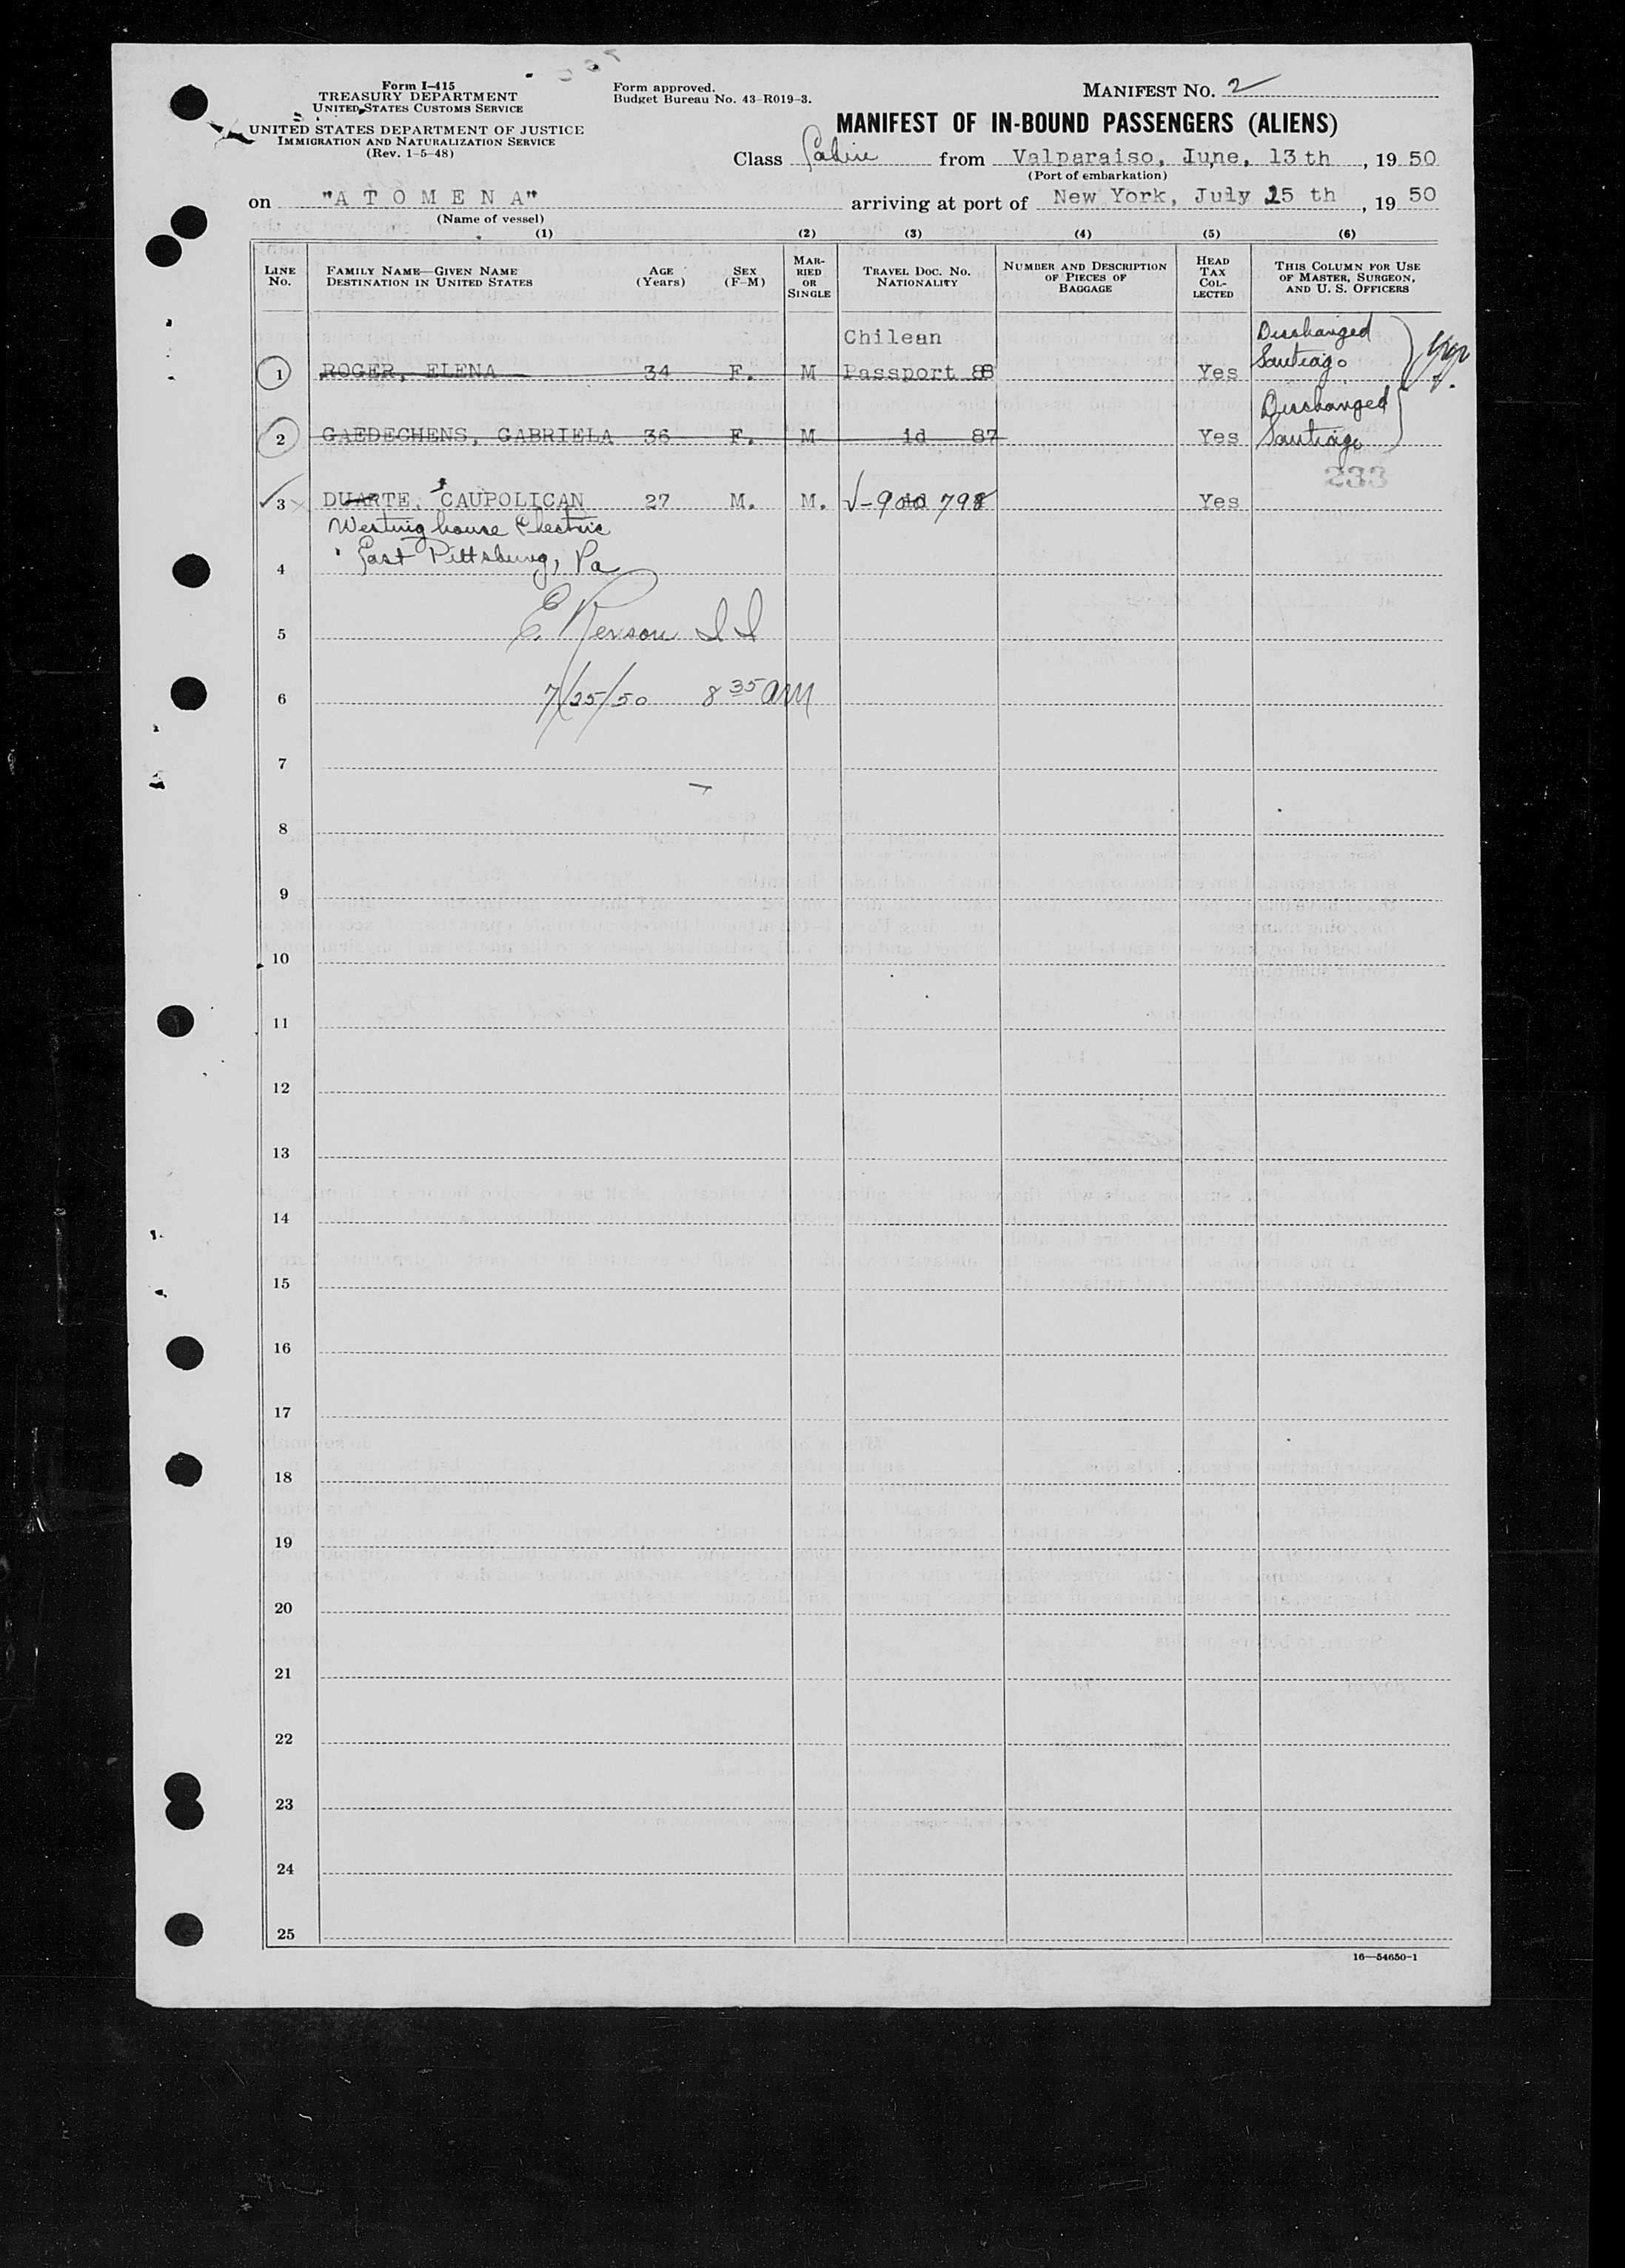 Form I-415
TREASURY DEPARTMENT
UNITED STATES CUSTOMS SERVICE
UNITED STATES DEPARTMENT OF JUSTICE
IMMIGRATION AND NATURALIZATION SERVICE
(Rev. 1-5-48)
Form approved.
Budget Bureau No. 43-R019-3.
MANIFEST NO. 2
MANIFEST OF IN-BOUND PASSENGERS (ALIENS)
Class Cabin from Valparaiso, June, 13 th, 19 50
(Port of embarkation)
on "A T O M E N A" arriving at port of New York, July 25 th, 19 50
(Name of vessel)
(1) (2) (3) (4) (5) (6)
LINE NO. FAMILY NAME—GIVEN NAME DESTINATION IN UNITED STATES AGE (Years) SEX (F-M) MARRIED OR SINGLE TRAVEL DOC. NO. NATIONALITY NUMBER AND DESCRIPTION OF PIECES OF BAGGAGE HEAD TAX COLLECTED THIS COLUMN FOR USE OF MASTER, SURGEON, AND U. S. OFFICERS
Chilean Discharged
1 ROGER, ELENA 34 F. M Passport 88 Yes Santiago
Discharged
2 GAEDECHENS, GABRIELA 36 F. M id 87 Yes Santiago
233
3 DUARTE, CAUPOLICAN 27 M. M. V-900 798 Yes
Westinghouse Electric
East Pittsburg, Pa
4
5
7/25/50 8 35 AM
6
7
8
9
10
11
12
13
14
15
16
17
18
19
20
21
22
23
24
25
16—54650-1